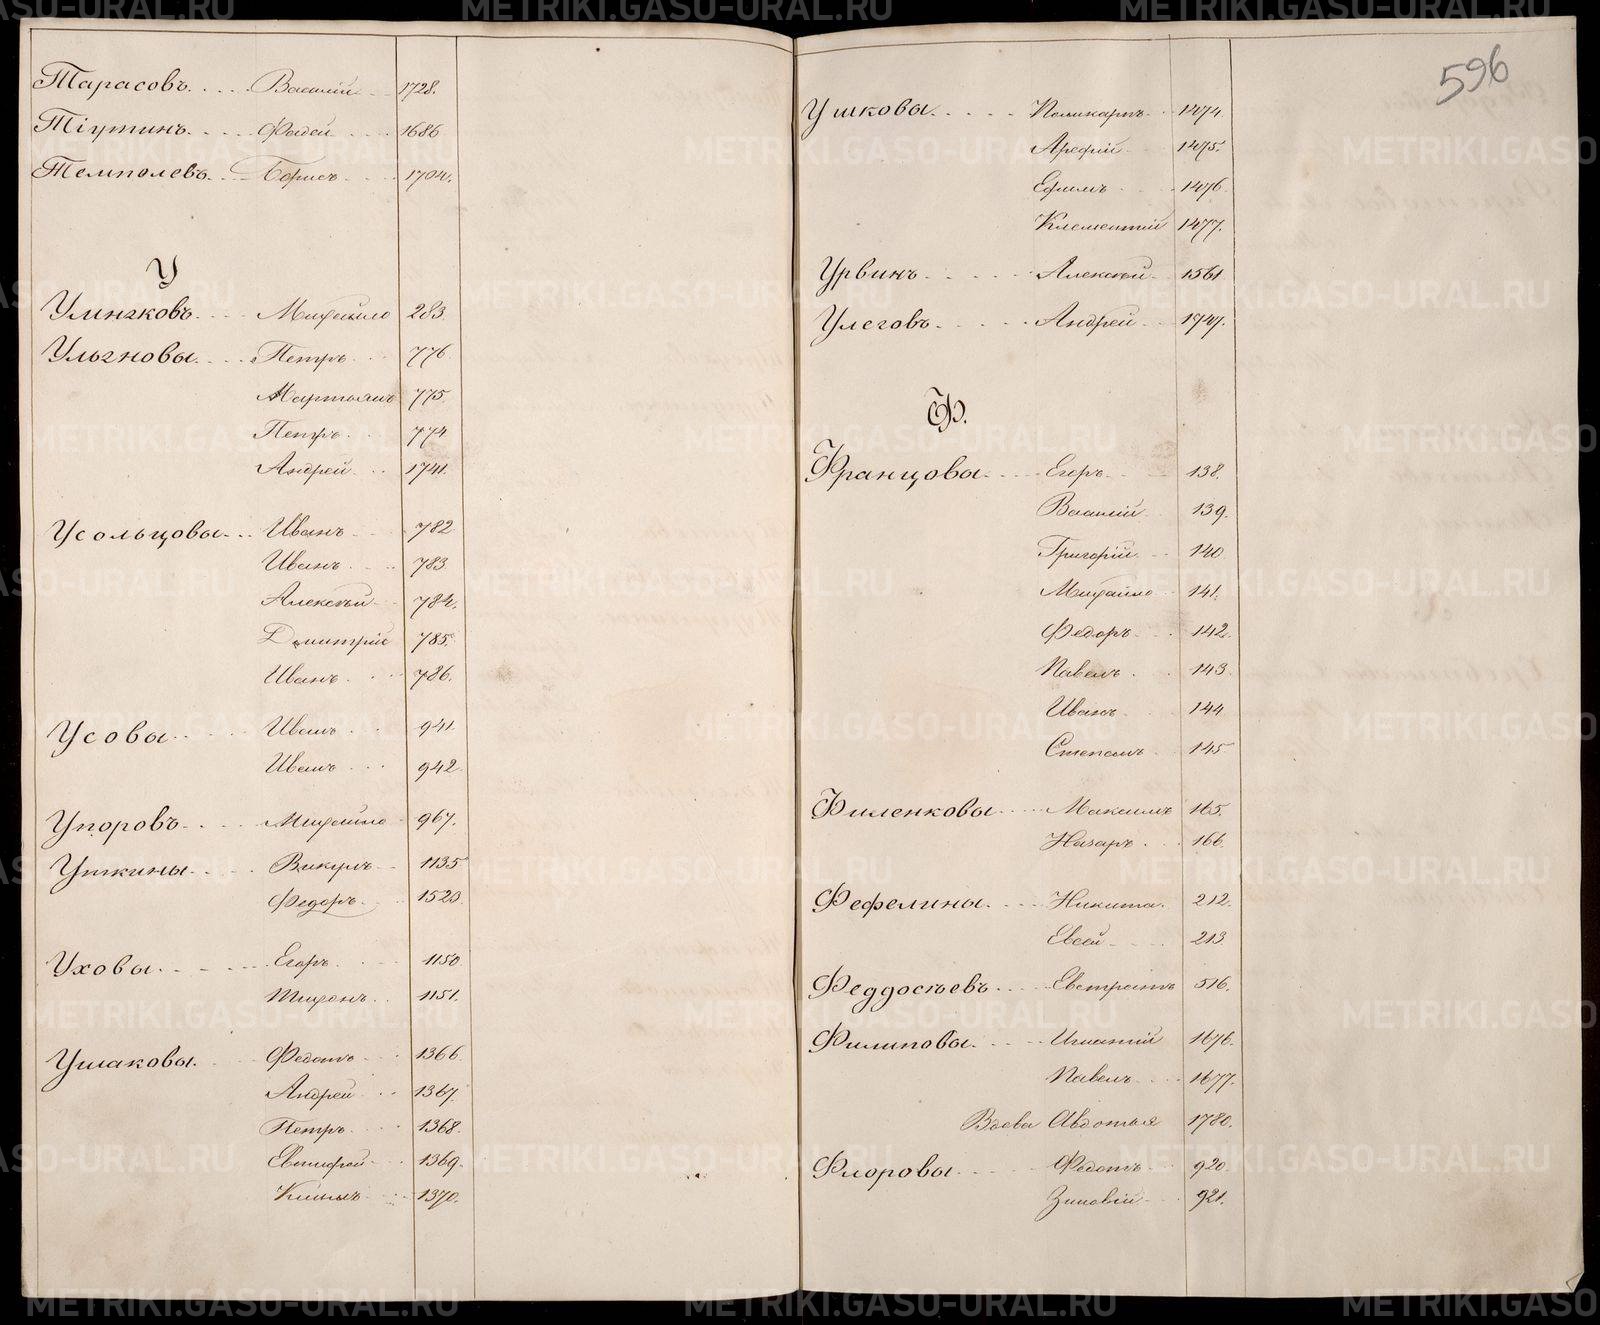 596
Тарасовъ. Василій 1728.
Тіутинъ. Фадей 1686
Темполевъ. Борисъ 1704.
У
Улингковъ. Михайло 283.
Ульгновы. Петръ 776
Мартьянъ 775.
Петръ 774
Андрей 1741.
Усольцовы. Иванъ 782
Иванъ 783.
Алексѣй 784.
Дмитрій 785.
Иванъ 786.
Усовы. Иванъ 941.
Иванъ 942
Упоровъ. Михайло 967.
Уткины. Викулъ 1135
Федоръ. 1520.
Уховы. Егоръ 1150
Тихонъ 1151.
Ушаковы. Федотъ 1366
Андрей 1367.
Петръ. 1368.
Евтифей 1369.
Климъ 1370.
Ушковы. Поликарпъ 1474.
Арефій 1475.
Ефимъ 1476
Клементій 1477.
Урвинъ Алексѣй 1561
Улеговъ. Андрей 1947.
Ф.
Францовы. Егоръ 138.
Василій 139.
Григорій 140
Михайло 141.
Федоръ 142.
Павелъ 143
Иванъ 144
Степанъ 145
Филенковы Максимъ 165.
Назаръ 166.
Фефелины. Никита. 212.
Евсей 213.
Феддосѣевъ. Евстратъ 516.
Филиповы. Игнатій 1676.
Павелъ 1677.
Вдова Авдотья 1780.
Флоровы. Федотъ 920.
Зиновій 921.
METRIKI.GASO-URAL.RU